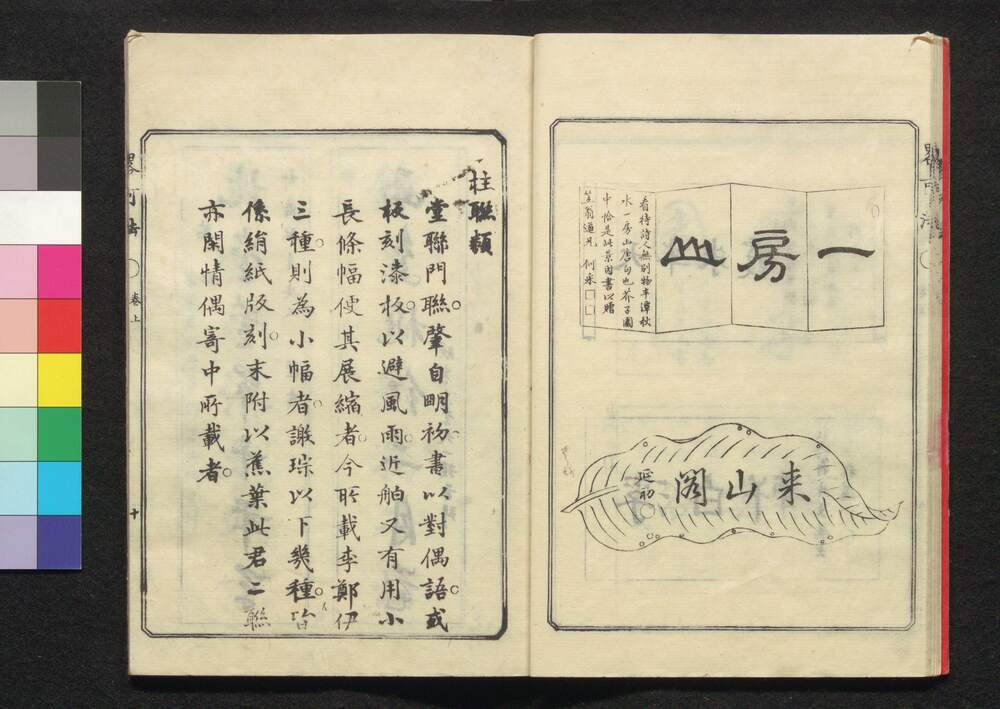 一房山
看待詩人無別物半潭秋
水一房山唐句也芥子園
中恰是此景因書以贈
笠翁道兄 何采
来山閣
延初
柱聯類
堂聯門聯肇自明初書以對偶語或
板刻漆板以避風雨近舶又有用小
長條幅便其展縮者今所載李鄭伊
三種則為小幅者謝琮以下幾種皆
係絹紙版刻末附以蕉葉此君二聯
亦閑情偶寄中所載者
卷上
十